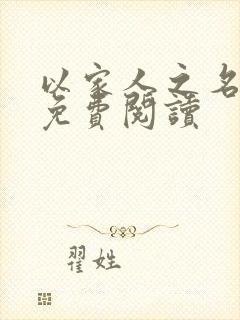 以家人之名
免費閱讀
翟姓